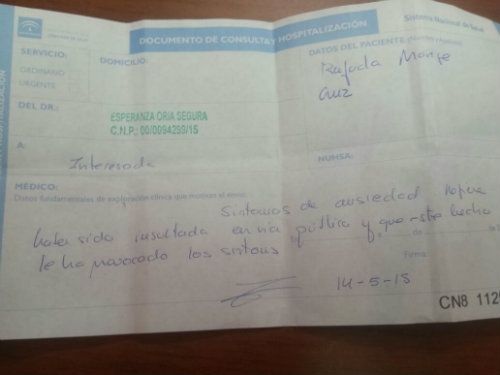 DOCUMENTO DE CONSULTA Y HOSPITALIZACIÓN
Sistema Nacional de Salud
SERVICIO:
DOMICILIO:
DATOS DEL PACIENTE
ORDINARIO
URGENTE
Rafaela Monge
Cruz
DEL DR.:
ESPERANZA ORIA SEGURA
C.N.P.: 00/0094259/15
A:
Interesada
NUHSA:
MÉDICO:
Datos fundamentales de exploración clínica que motivan el envío
Síntomas de ansiedad
haber sido insultada en vía pública y que este hecho
le ha provocado los síntomas
a de de
Firma:
14-5-15
CN8 112